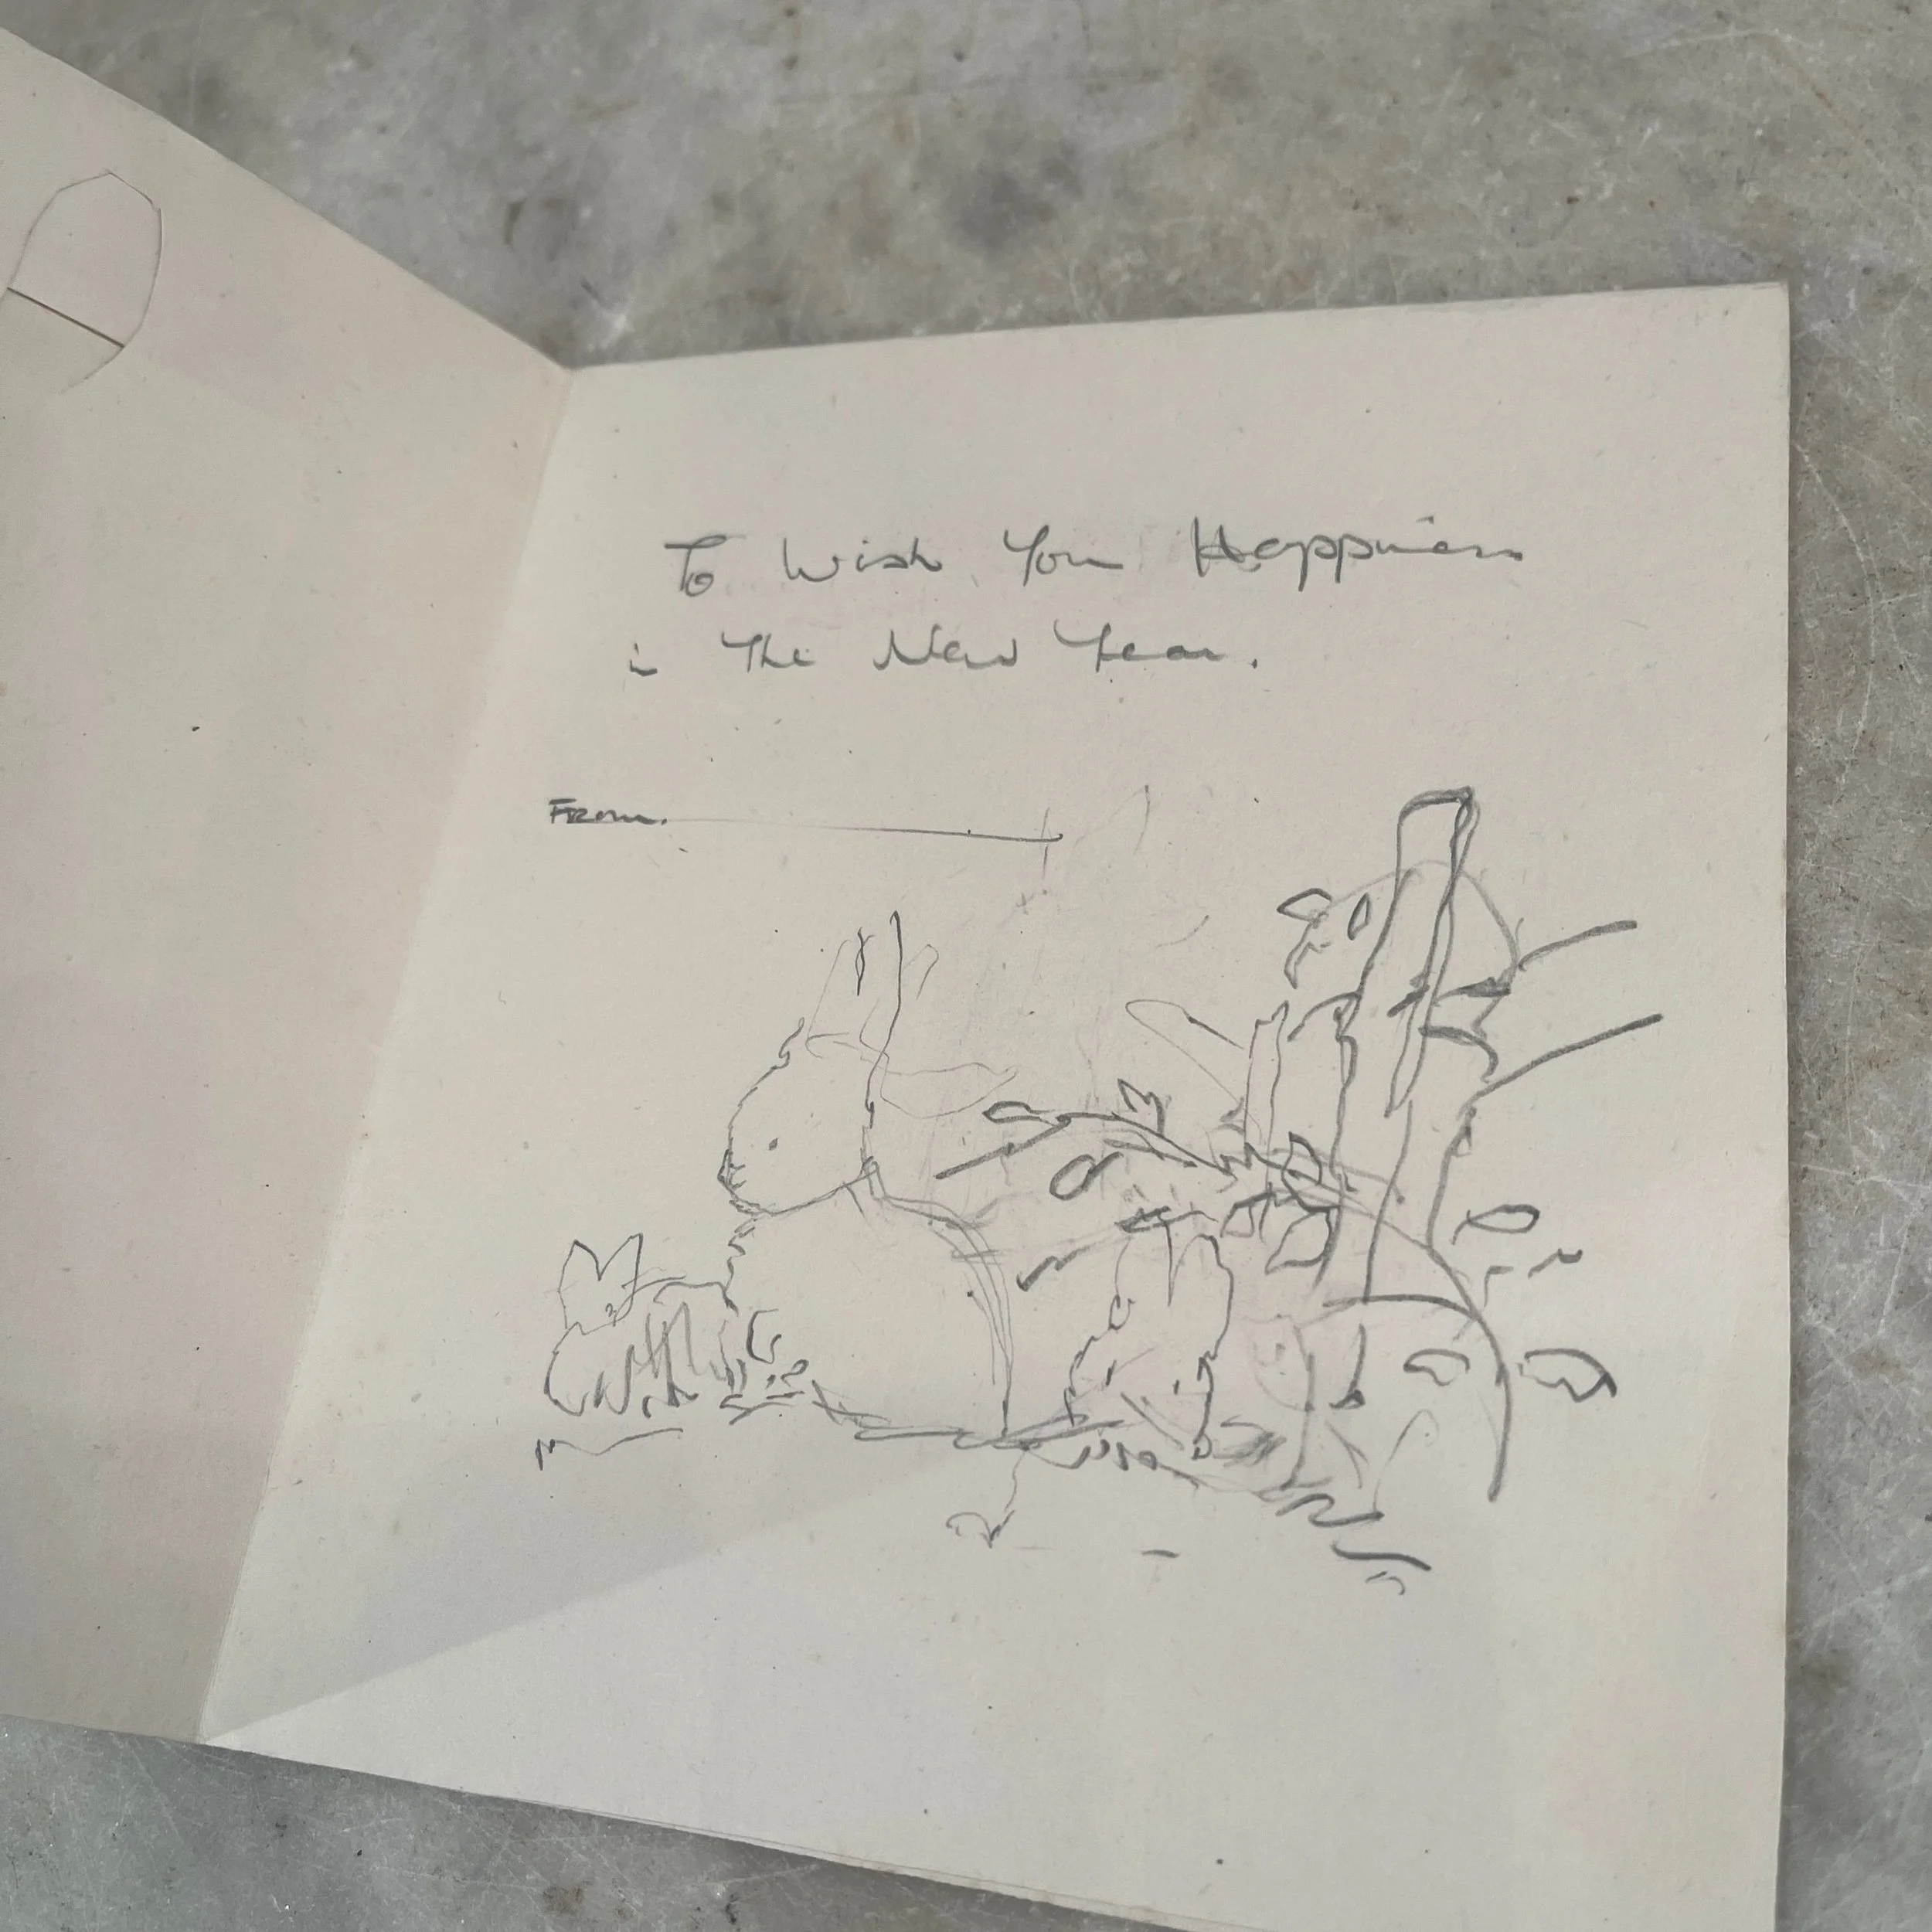 To Wish You Happiness
in The New Year.
From.